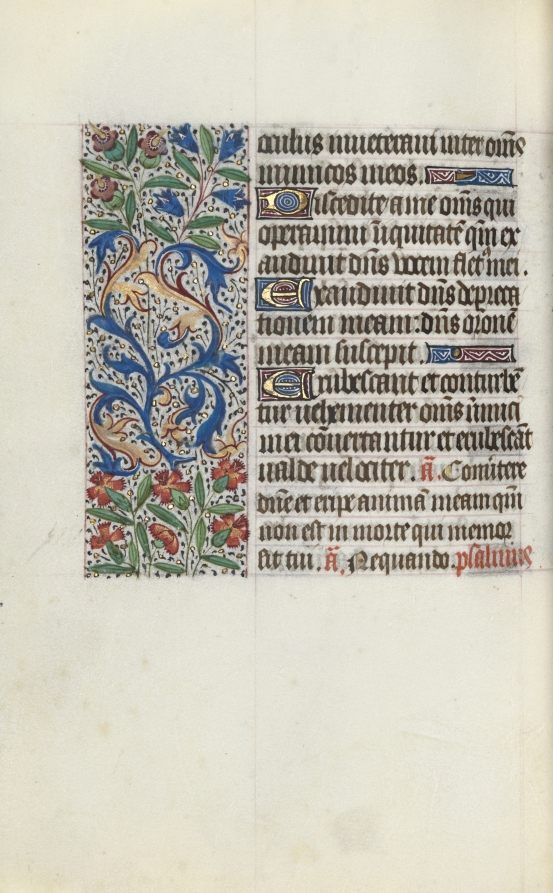 oculus inveteravi inter om̄s
inimicos meos.
Discedite a me om̄s qui
operamini iniquitatē qm̄ ex
audivit dn̄s vocem fletꝰ mei.
Exaudivit dn̄s depreca
tionem meam: dn̄s oronē
meam suscepit.
Erubescant et conturbē
tur vehementer om̄s inimici
mei cōvertantur et erubescāt
valde velociter. ā. Convertere
dn̄e et eripe animā meam qm̄
non est in morte qui memor
sit tui. ā. Nequando. psalmus